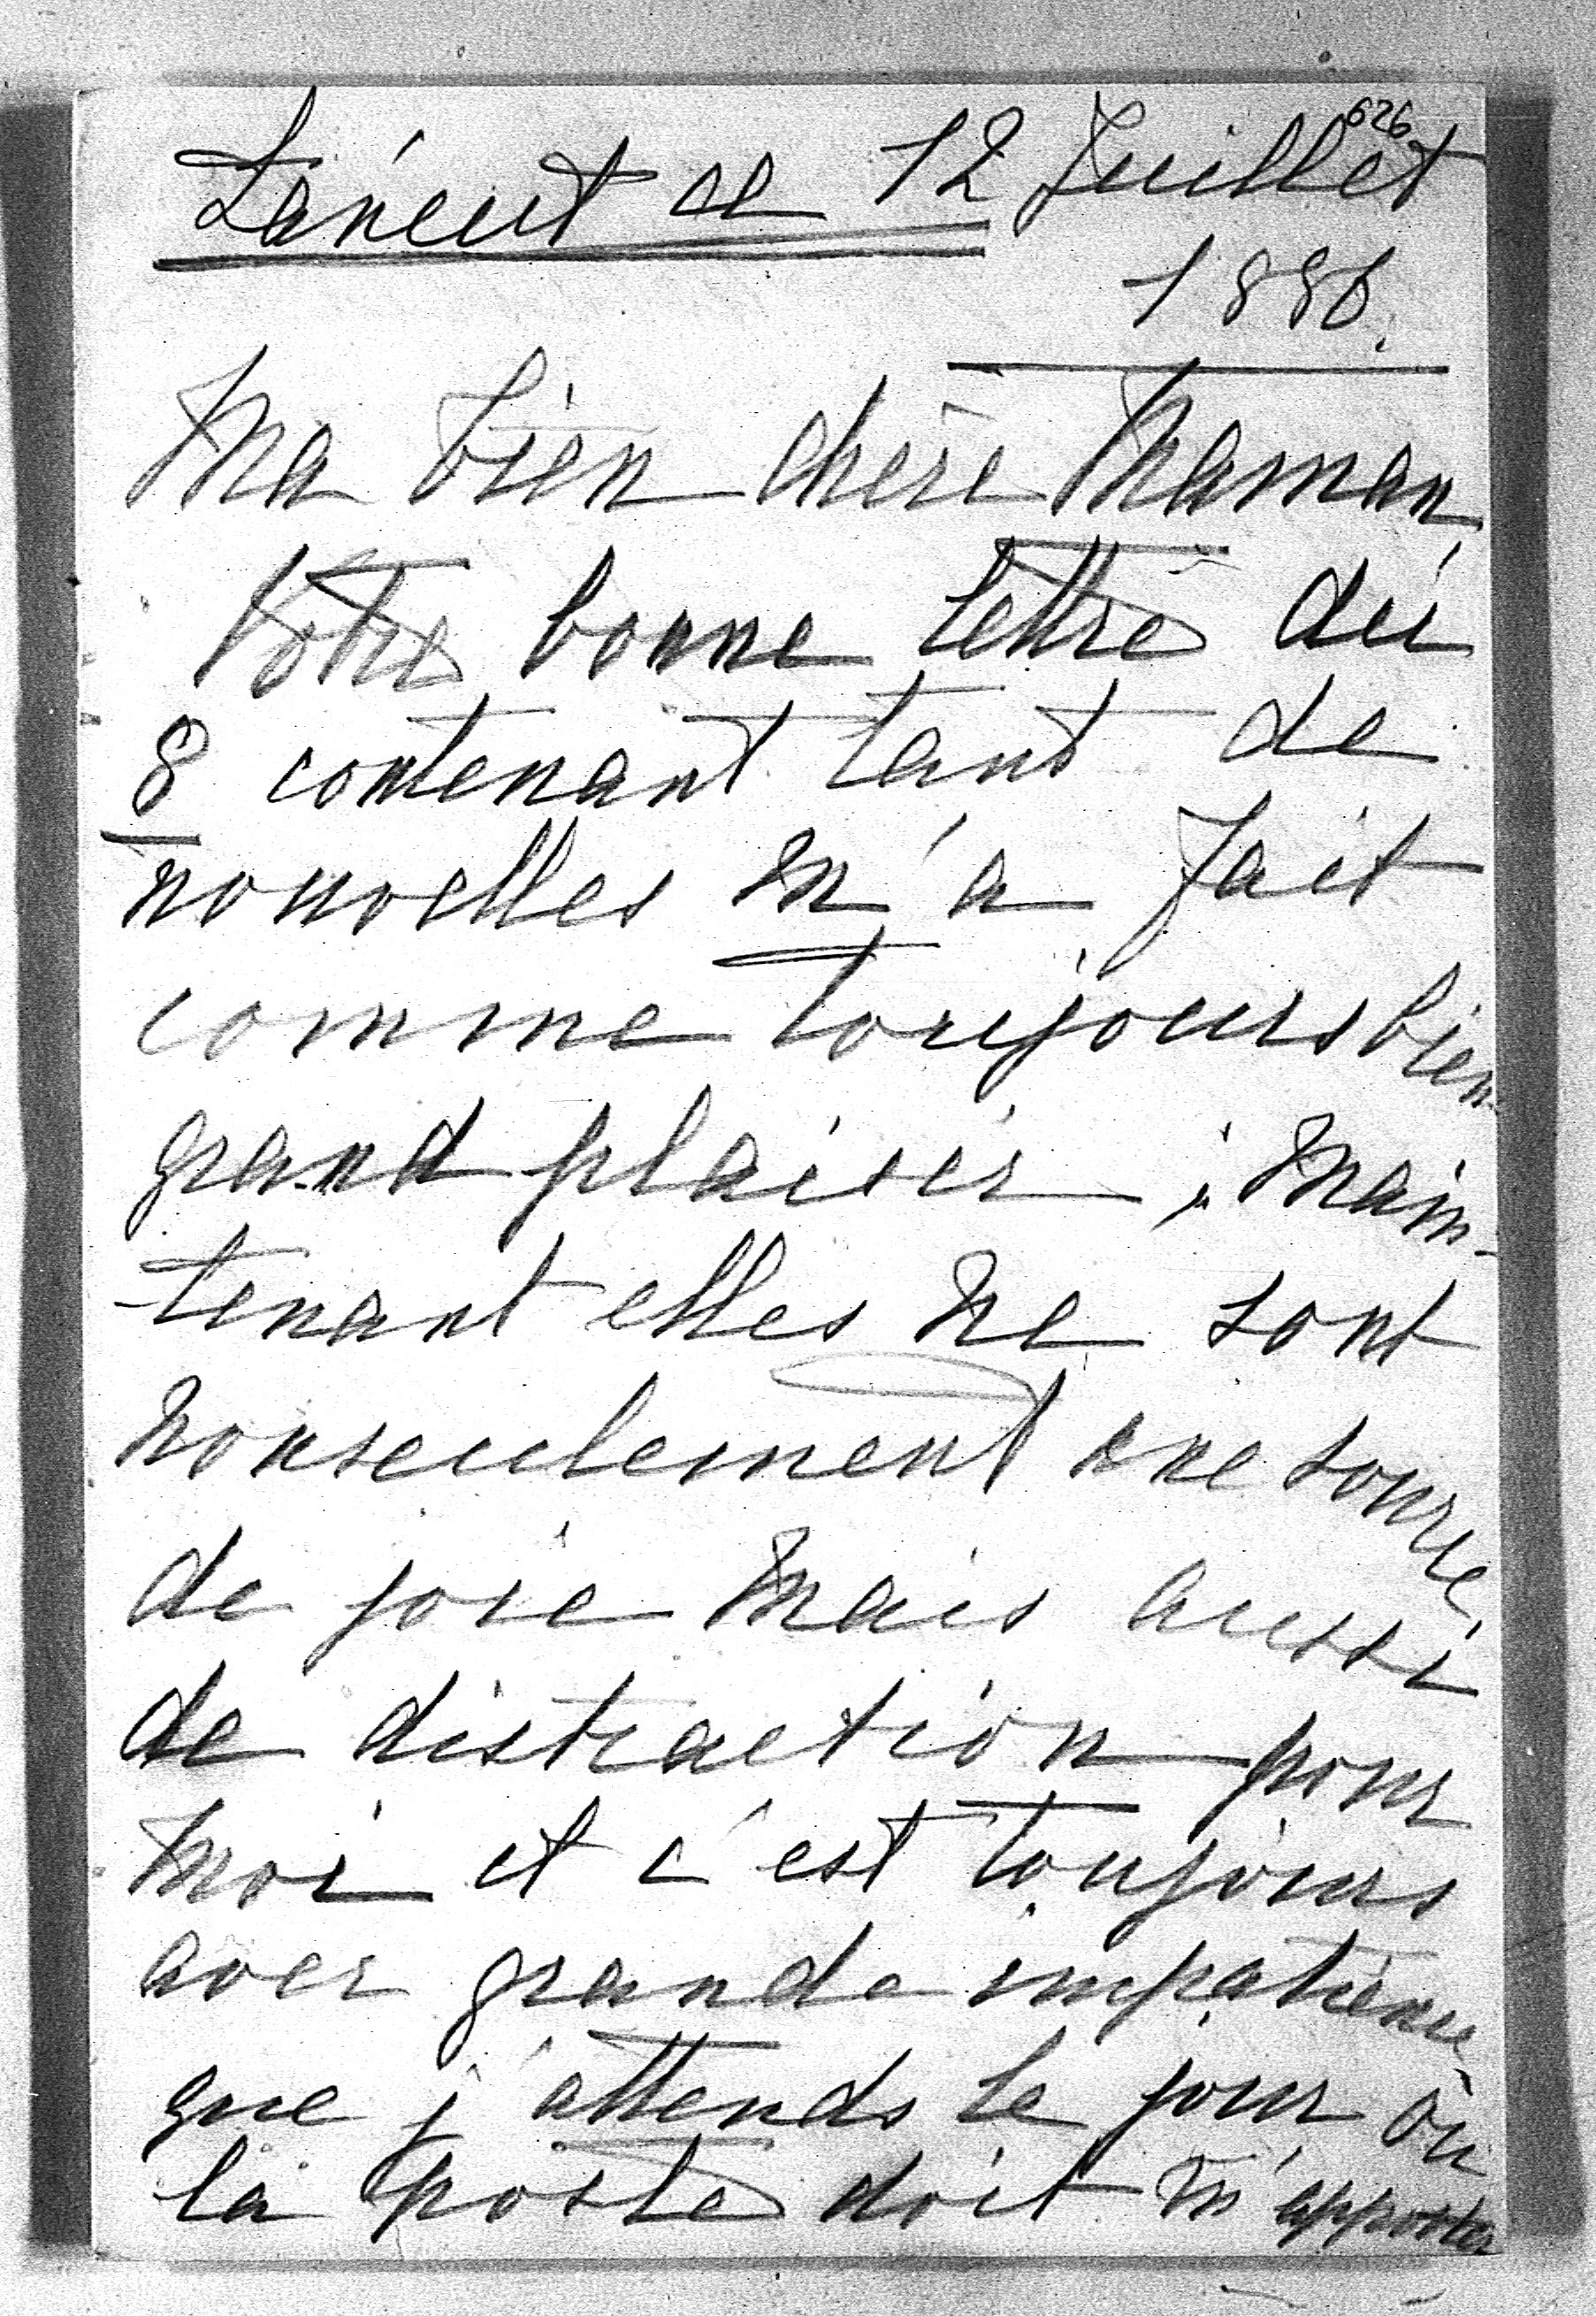 626
Láncut ce 12 Juillet
1886.
Ma bien chère Maman
Votre bonne lettre du
8 contenant tant de
nouvelles m'a fait
comme toujours bien
grand plaisir ; Main-
-tenant elles ne sont
nonseulement une source
de joie mais aussi
de distraction pour
moi et c'est toujours
avec grande impatience
que j'attends le jour où
la poste doit m'apporter